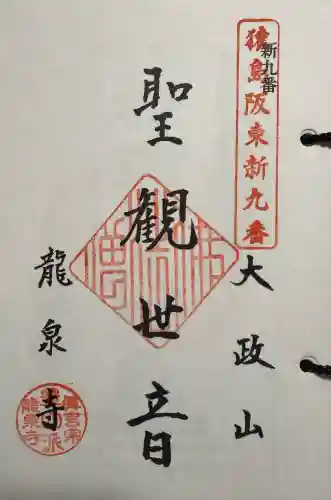 猿島阪東新九番
新九番
大政山
聖観世音
龍泉寺